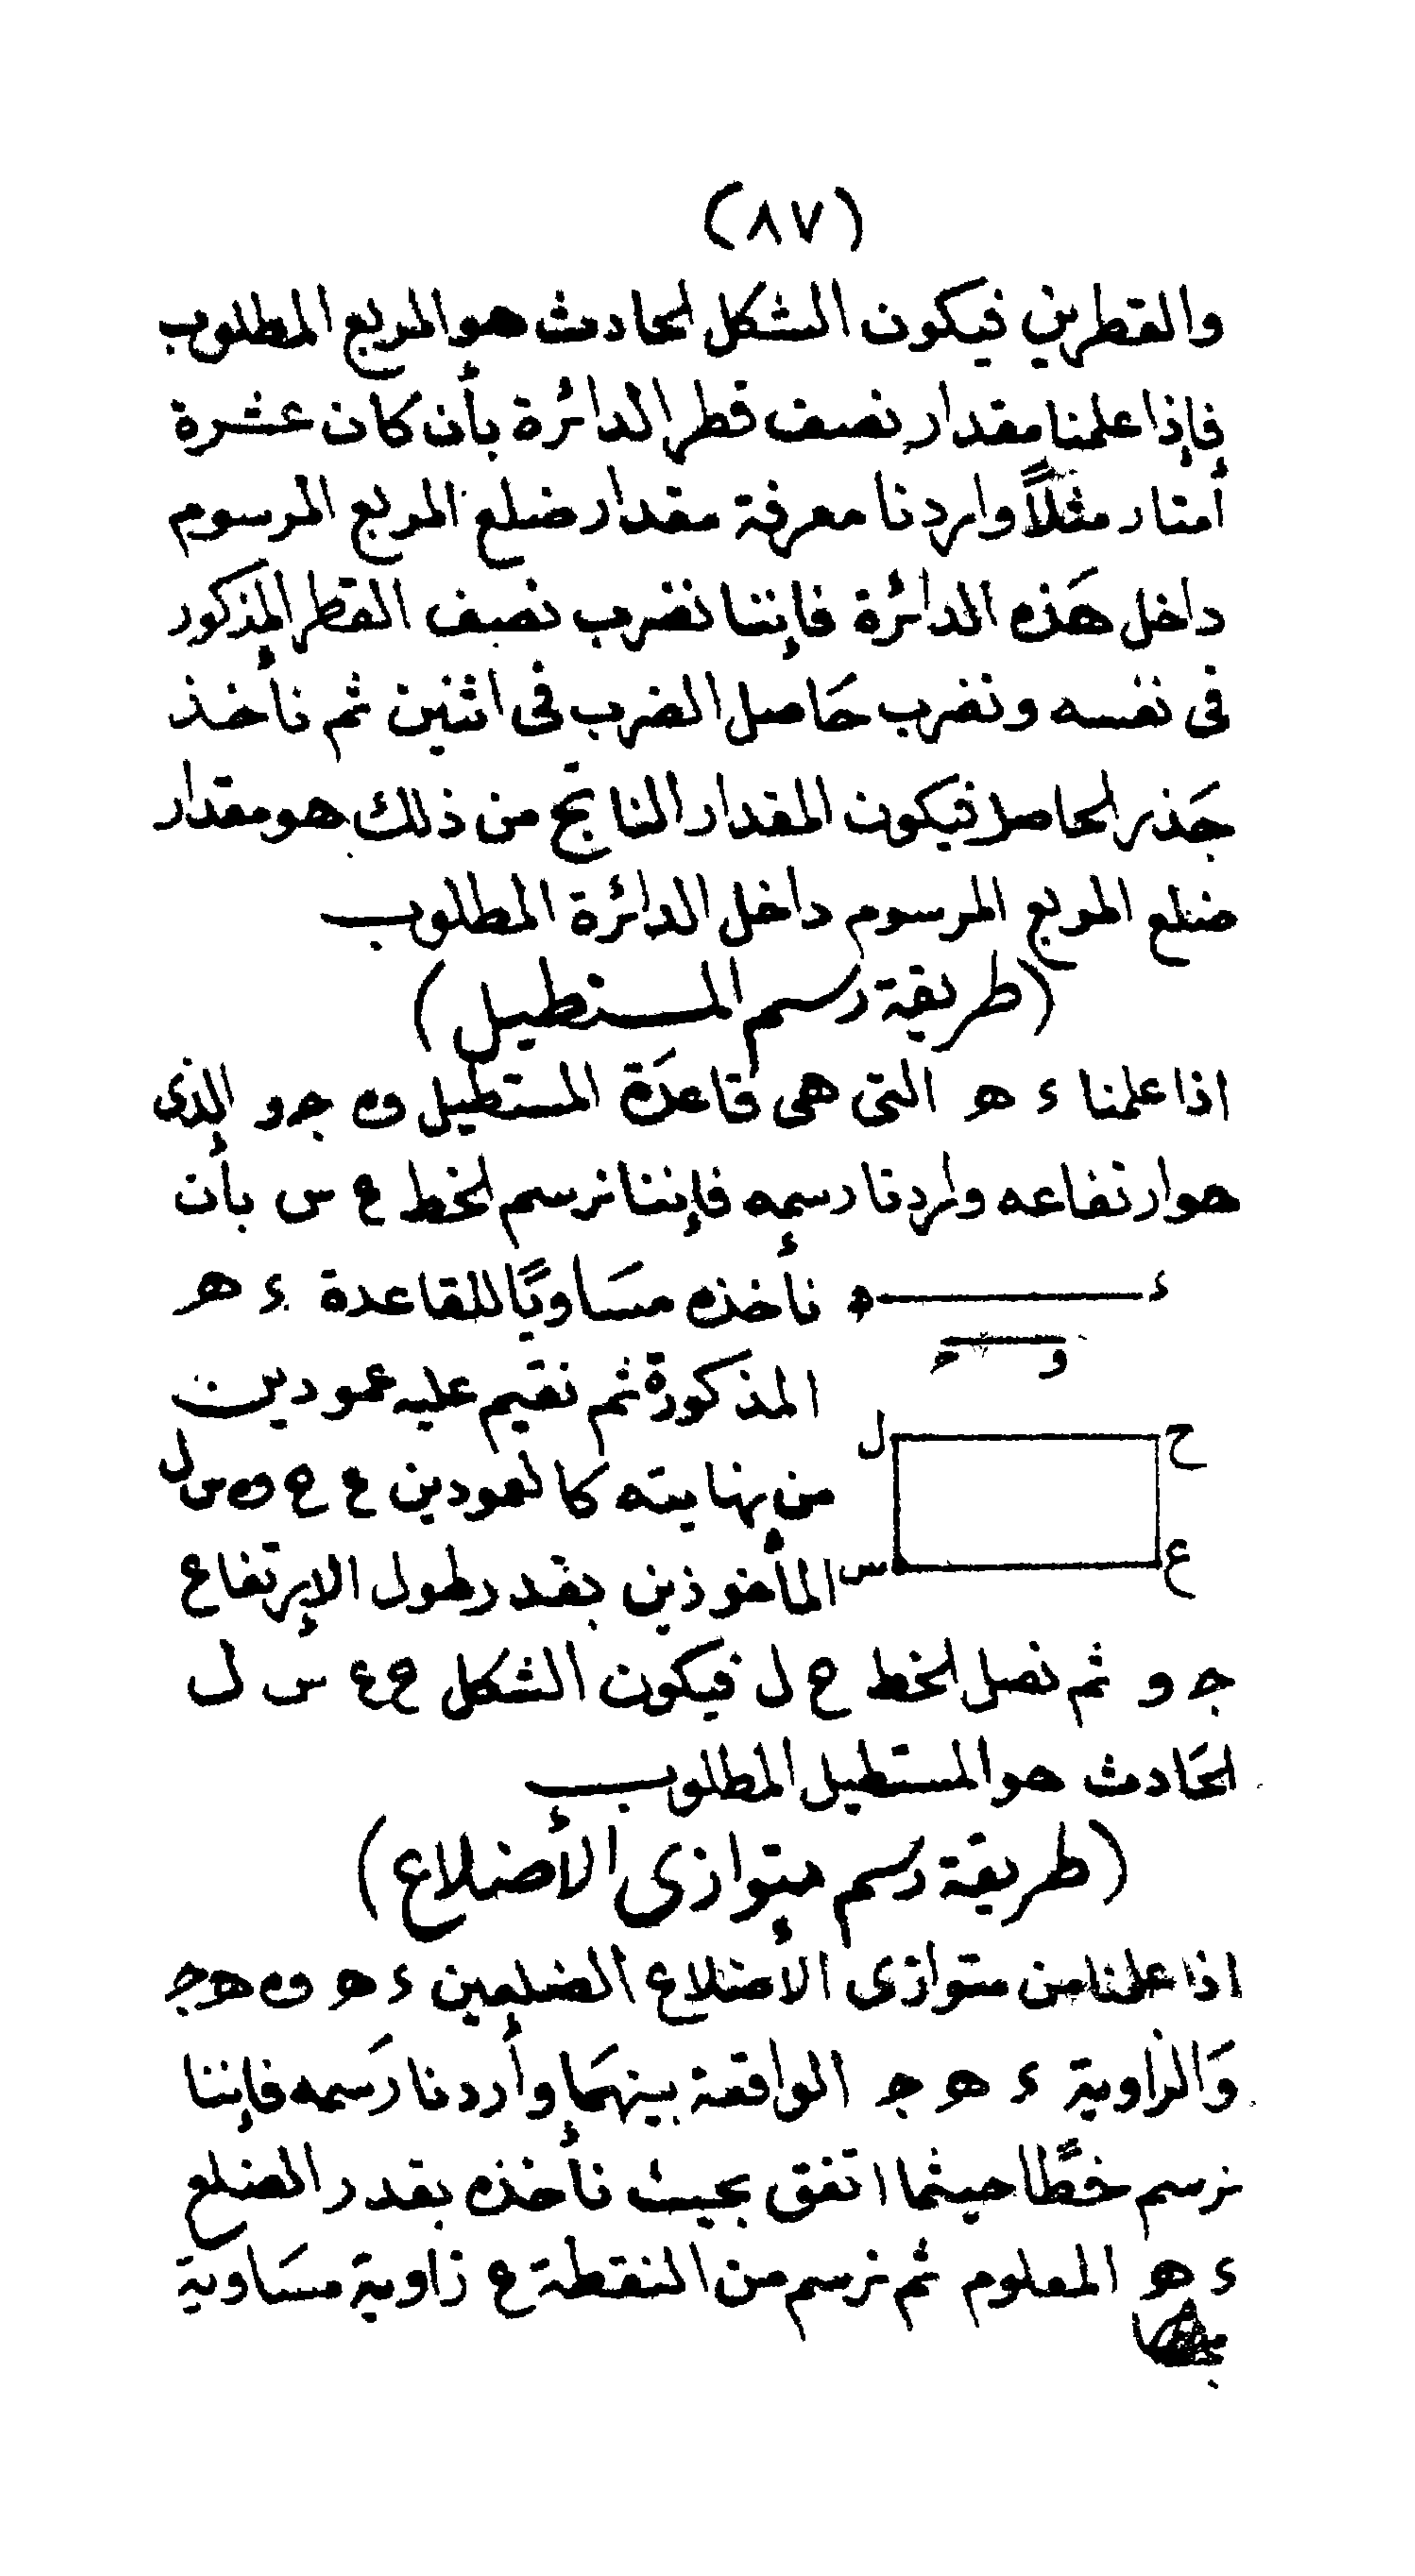 (٨٧)
والقطرين فيكون الشكل الحادث هو المربع المطلوب
فإذا علمنا مقدار نصف قطر الدائرة بأن كان عشرة
أمتار مثلاً واردنا معرفة مقدار ضلع المربع المرسوم
داخل هَذه الدائرة فإننا نضرب نصف القطر المذكور
فى نفسه ونضرب حَاصل الضرب فى اثنين ثم نأخذ
جَذر الحاصل فيكون المقدار الناتج من ذلك هو مقدار
ضلع المربع المرسوم داخل الدائرة المطلوب
(طريقة رسم المستطيل)
اذا علمنا ء ه التى هى قاعدَة المستطيل و ج و الذى
هو ارتفاعه واردنا رسمه فإننا نرسم الخط ع س بأن
ء ه نأخذه مسَاويًا للقاعدة ء ه
و ج
المذكورة ثم نقيم عليه عمودين
ح ل
من نهايته كالعمودين ع ح و س ل
ع س المأخوذين بقدر طول الإرتفاع
ج و ثم نصل الخط ح ل فيكون الشكل ح ع س ل
الحَادث هو المستطيل المطلوب
(طريقة رسم متوازى الأضلاع)
اذا علمنا من متوازى الاضلاع الضلعين ء ه و ه ج
وَالزاوية ء ه ج الواقعة بينهمَا وأردنا رَسمه فإننا
نرسم خطًّا حيثما اتفق بحيث نأخذه بقدر الضلع
ء ه المعلوم ثم نرسم من النقطة ع زاوية مسَاوية